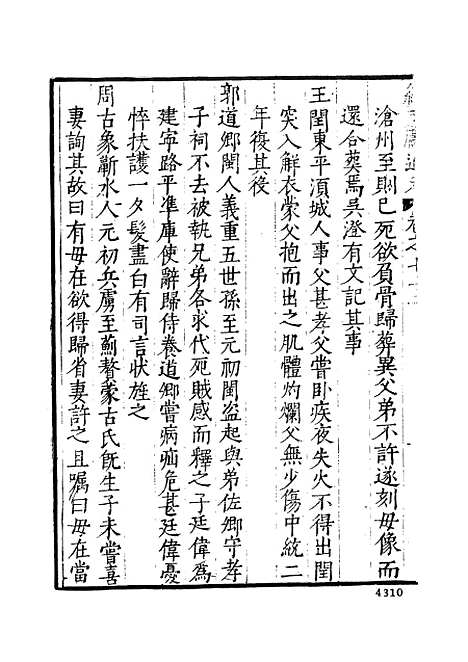 滄州至則已死欲負骨歸葬異父弟不許遂刻毋像而
還合葬焉吳澄有文記其事
王閏東平湏城人事父甚孝父嘗卧疾夜失火不得出閏
突入解衣蒙父抱而出之肌體灼爛父無少傷中統二
年復其役
郭道鄉閩人義重五世孫至元初閩盗起與弟佐鄉守孝
子祠不去被執兄弟各求代死賊感而釋之子廷偉為
建寜路平凖庫使辭歸侍養道鄉嘗病疝危甚廷偉憂
悴扶護一夕髮盡白有司言狀旌之
周古象蘄水人元初兵虜至薊贅蒙古氏旣生子未嘗喜
妻詢其故曰有毋在欲得歸省妻許之且嘱曰毋在當
4310